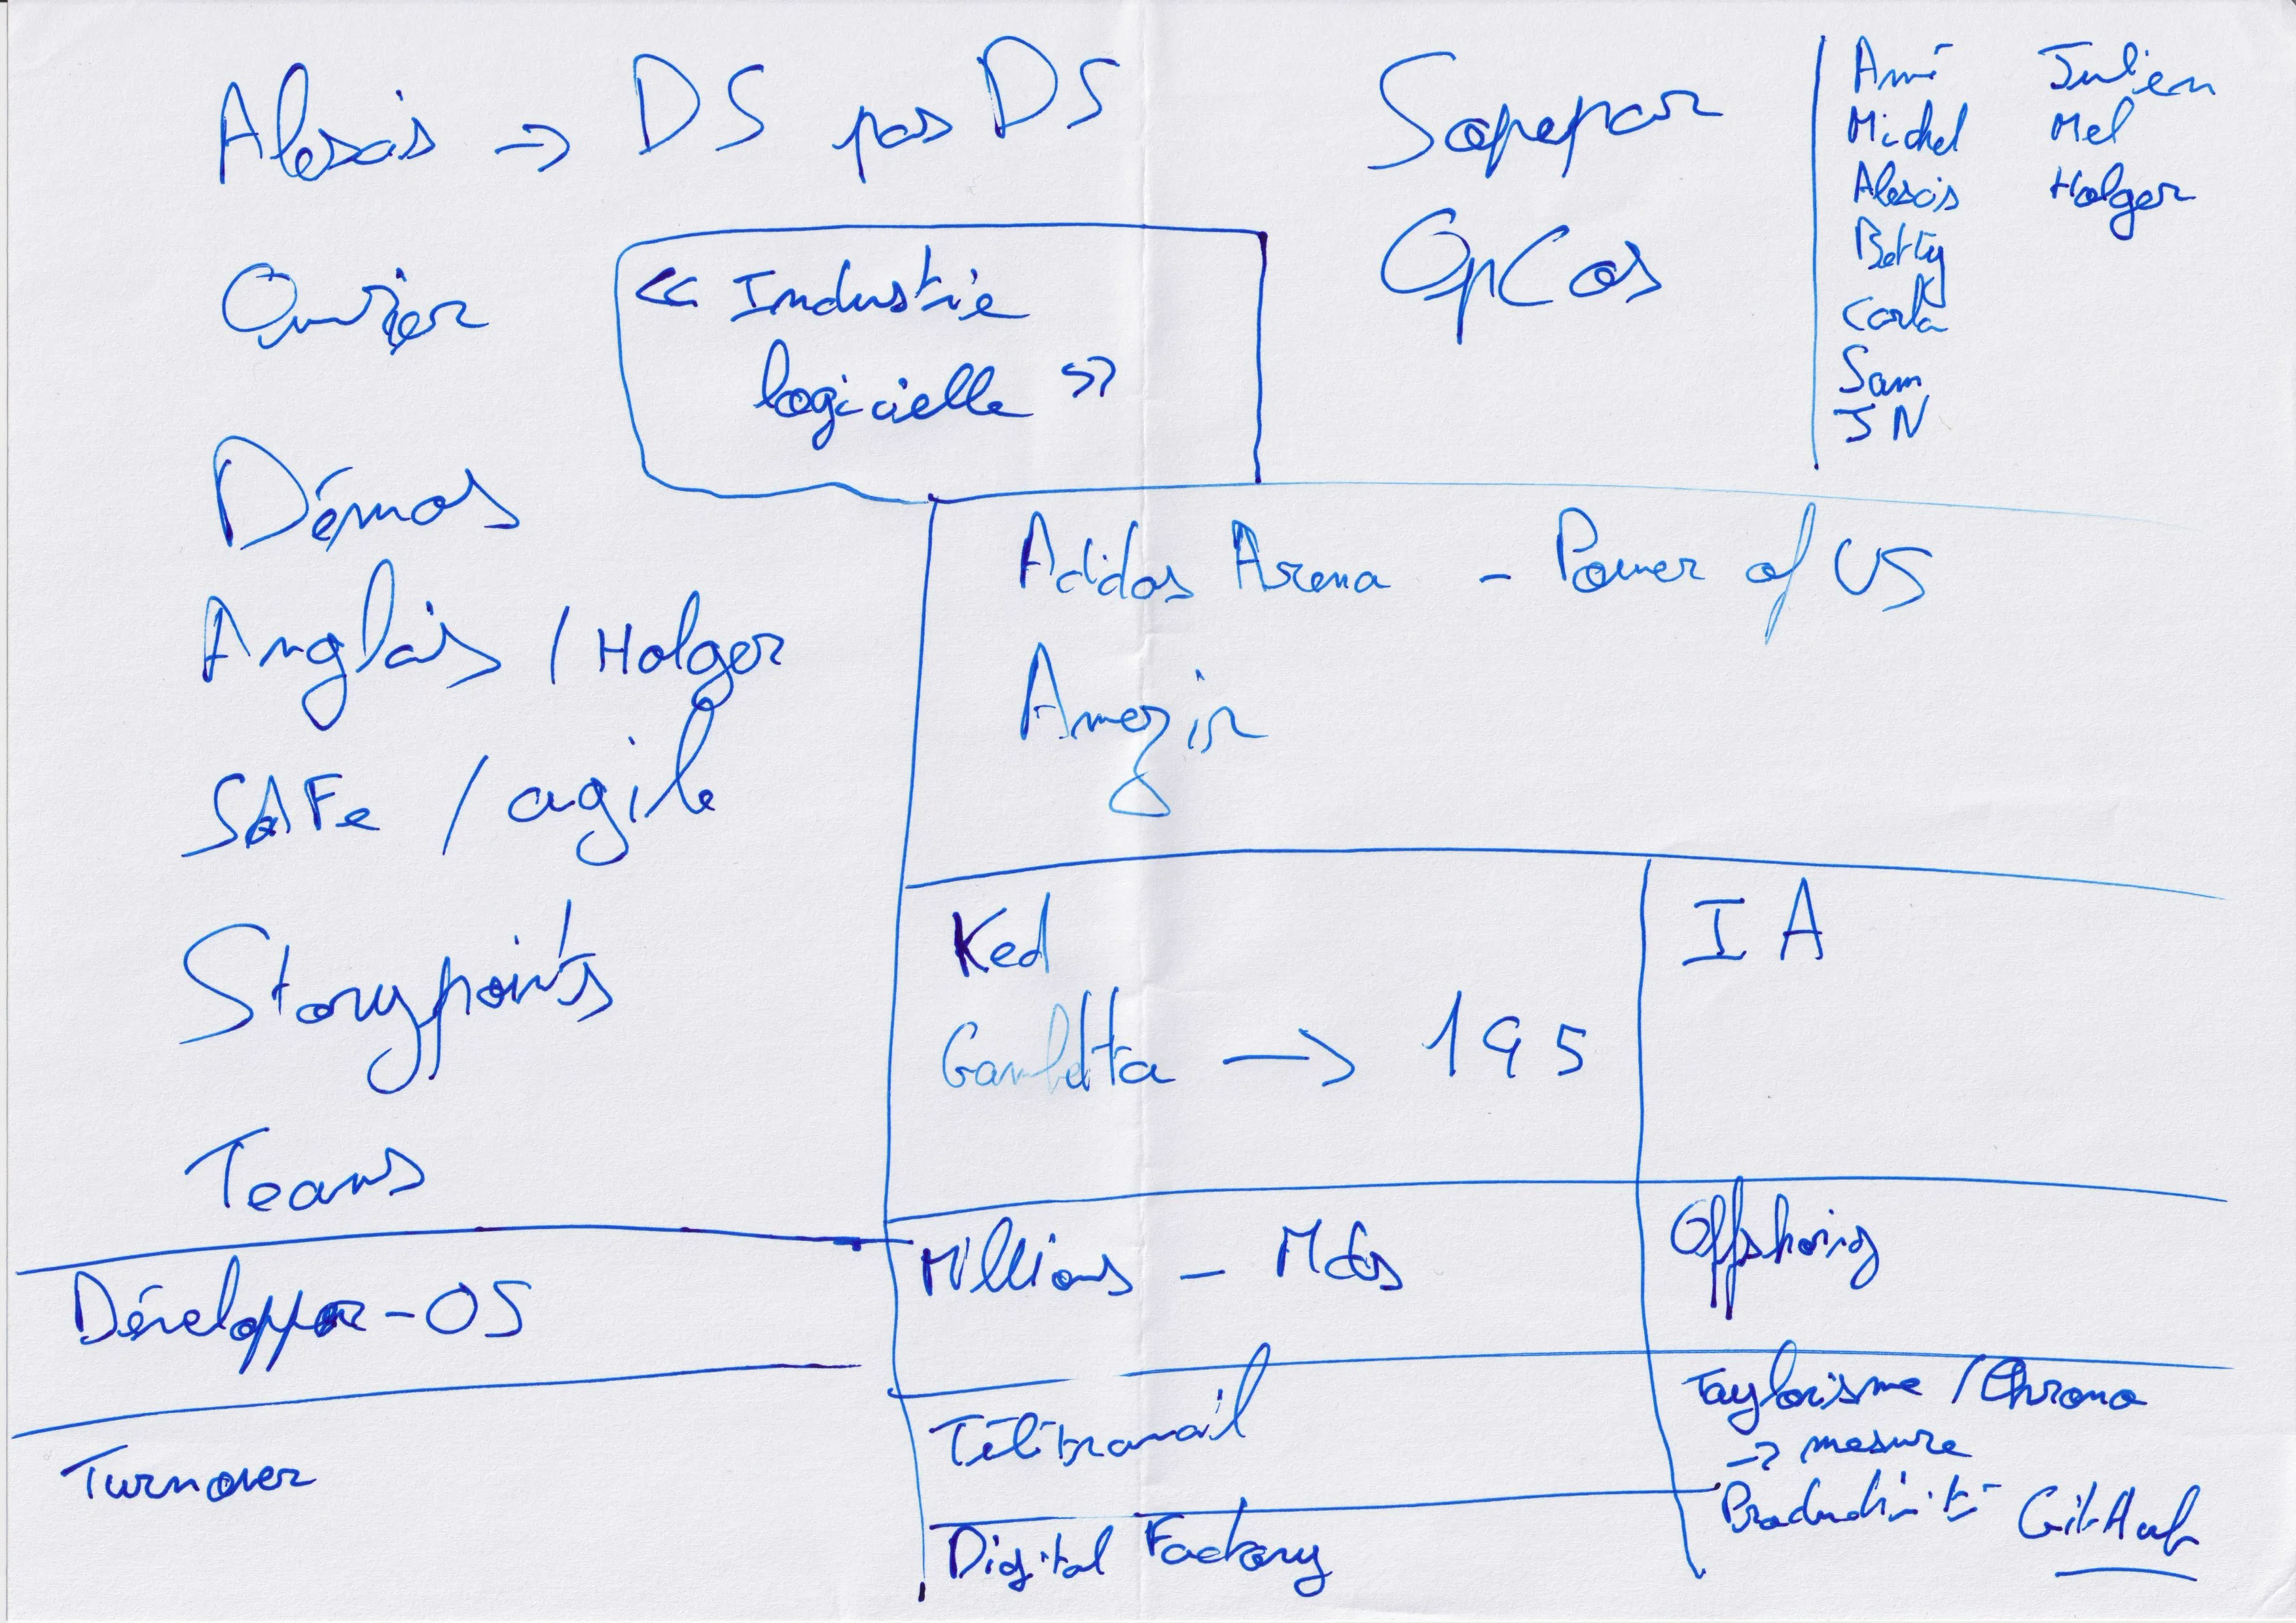 Alexis → DS pas DS
Ouvrier
« Industrie
logicielle »
Démos
Anglais / Holger
SAFe / agile
Storypoints
Teams
Développeur-OS
Turnover
Sopepar
OpCos
Amé
Michel
Alexis
Betty
Carla
Sam
JN
Julien
Mel
Holger
Adidas Arena - Power of US
Amazir
Ked
Gambetta → 195
IA
Millions - Mds
Offshoring
Télétravail
Taylorisme / Chrono
→ mesure
Productivité GitHub
Digital Factory